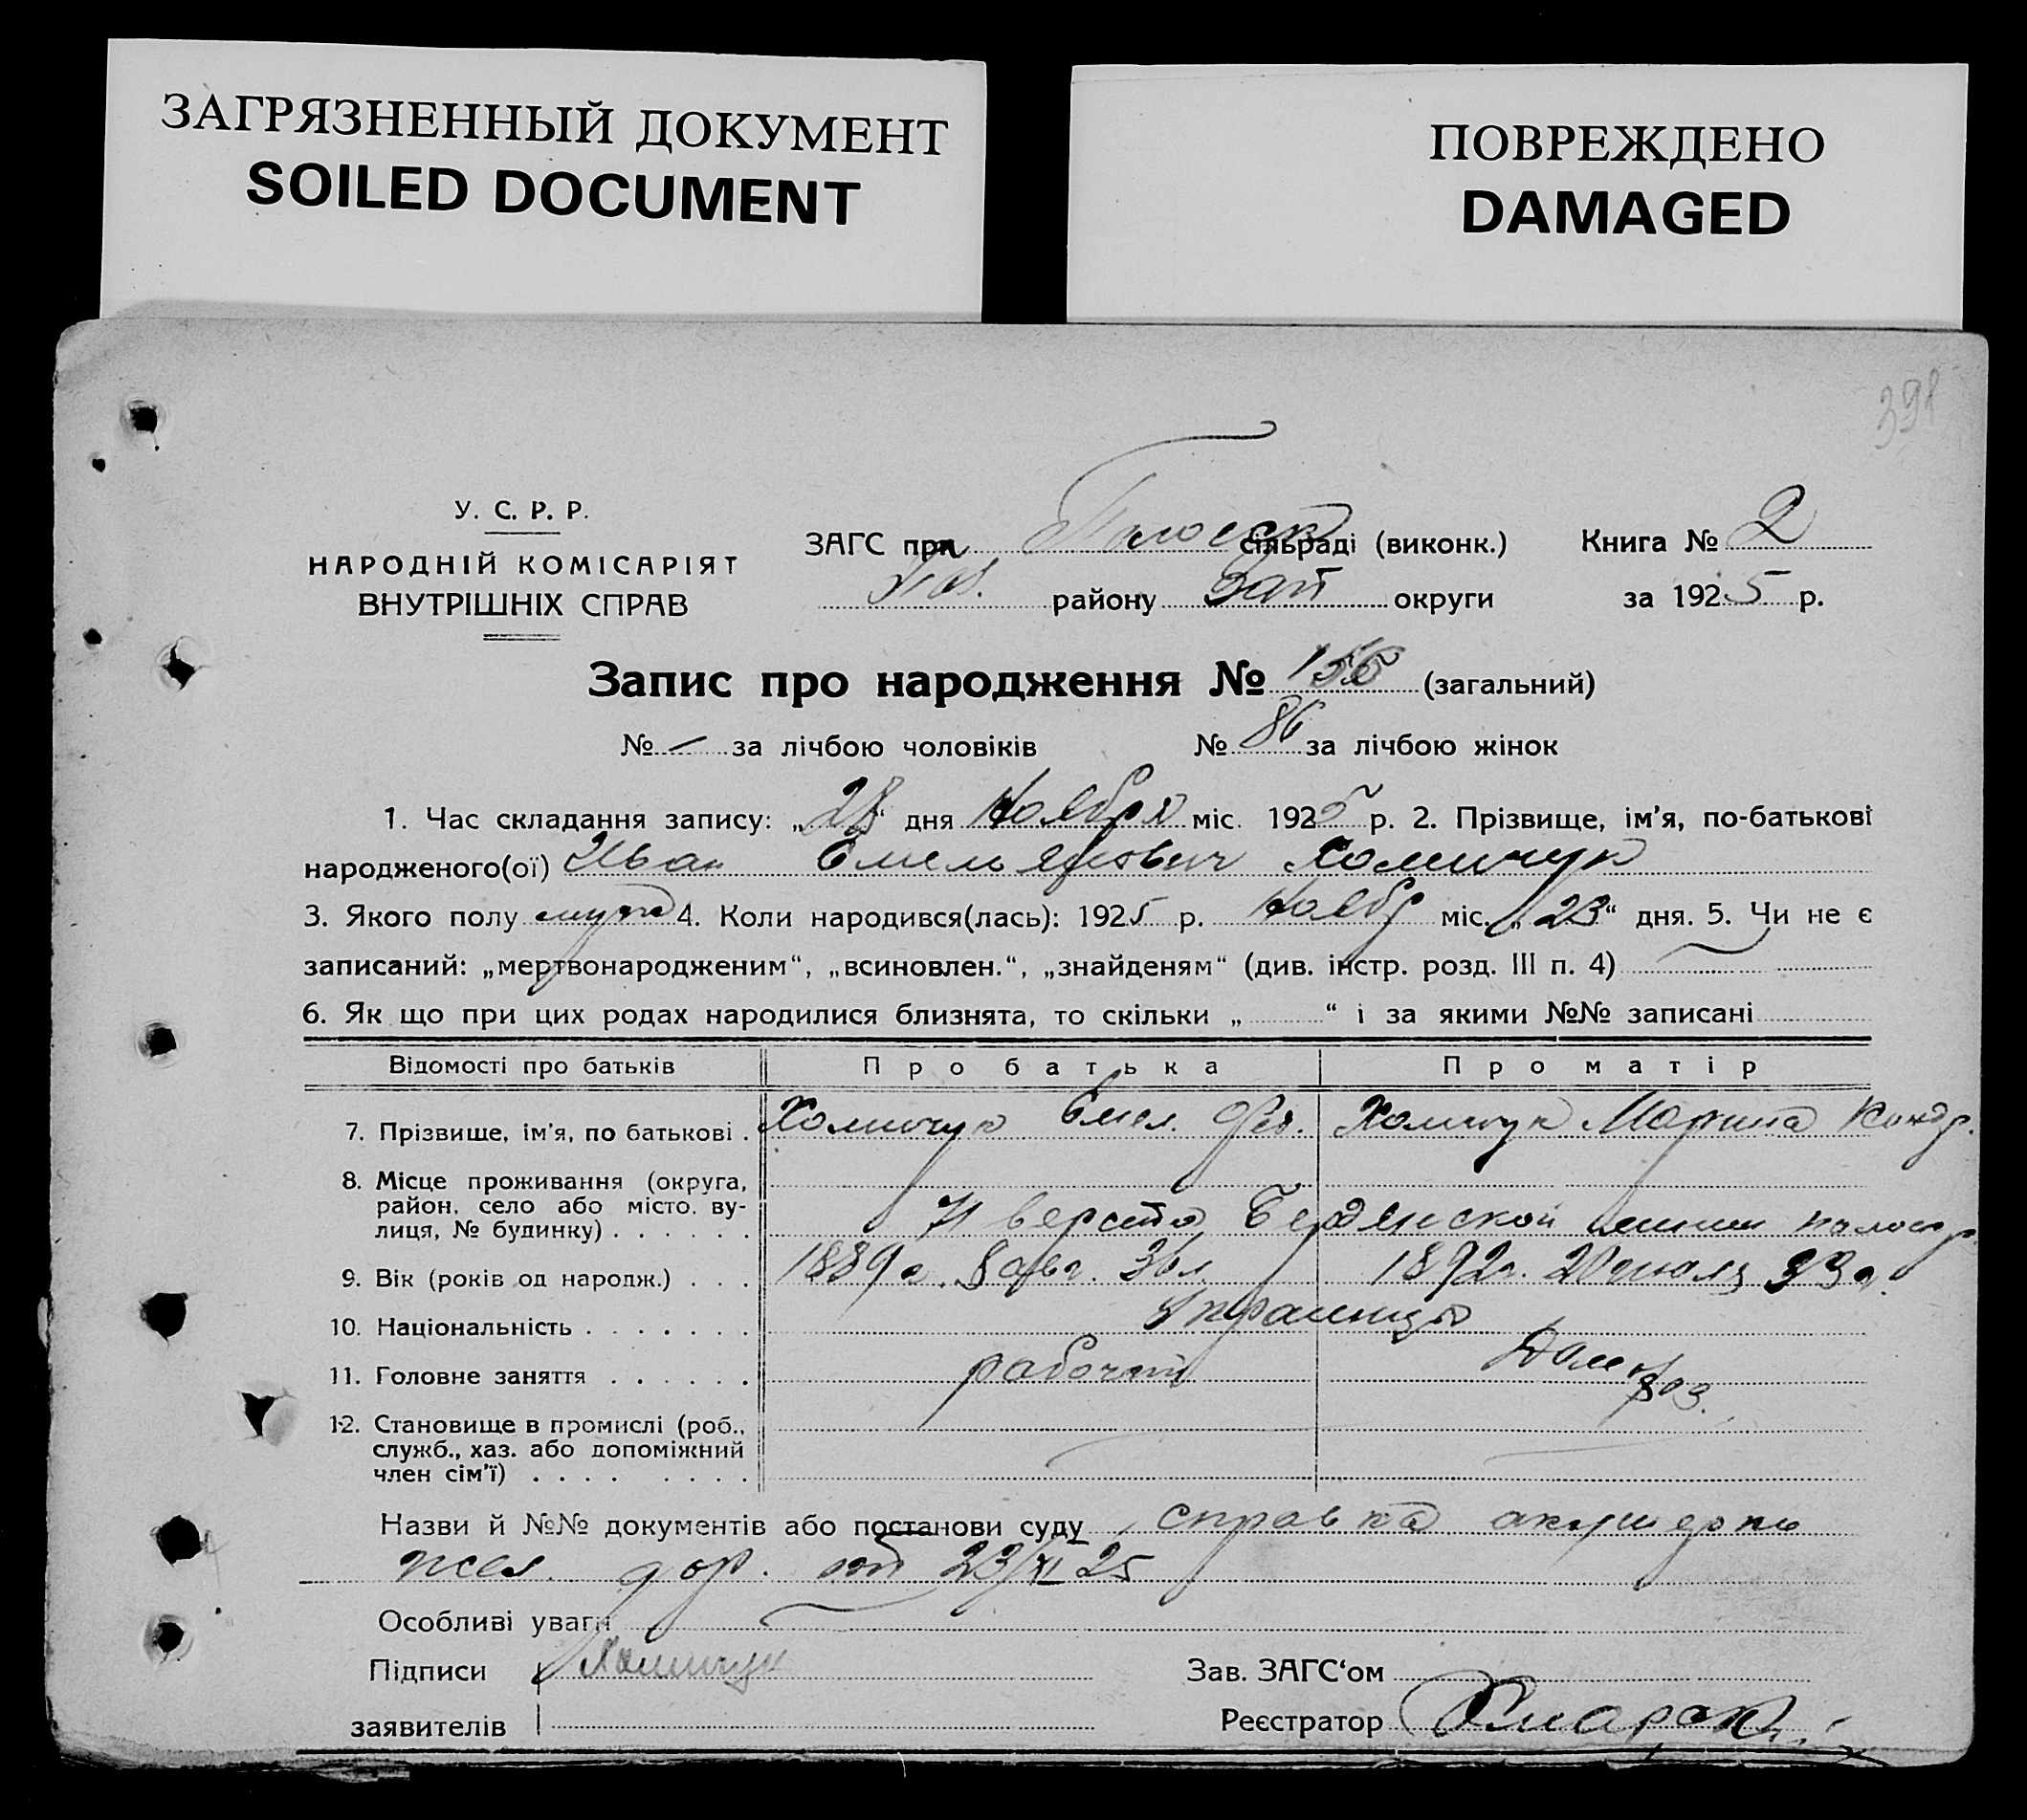 ЗАГРЯЗНЕННЫЙ ДОКУМЕНТ
SOILED DOCUMENT
ПОВРЕЖДЕНО
DAMAGED
391
У. С. Р. Р.
НАРОДНІЙ КОМІСАРІЯТ
ВНУТРІШНІХ СПРАВ
ЗАГС при сільраді (виконк.)
Пол. району Зап округи
Книга № 2
за 1925 р.
Запис про народження № 156 (загальний)
№ — за лічбою чоловіків № 86 за лічбою жінок
1. Час складання запису: „28“ дня Ноября міс. 1925 р. 2. Прізвище, ім'я, по-батькові
народженого(ої) Иван Емельянович Хомичук
3. Якого полу муж 4. Коли народився(лась): 1925 р. Ноябр міс. „23“ дня. 5. Чи не є
записаний: „мертвонародженим“, „всиновлен.“, „знайденям“ (див. інстр. розд. III п. 4)
6. Як що при цих родах народилися близнята, то скільки „ “ і за якими №№ записані
Відомості про батьків Про батька Про матір
7. Прізвище, ім'я, по батькові . Хомичук Емел. Фед. Хомичук Марина Кондр.
8. Місце проживання (округа,
район, село або місто, ву-
лиця, № будинку) . . . . . . 71 верста Бердянской линии
9. Вік (років од народж.) . . . 1889 г. 8 авг. 36 л. 1892 г. 20 июля 33 г.
10. Національність . . . . . . . Украинцы
11. Головне заняття . . . . . . рабочий Дом. хоз.
12. Становище в промислі (роб.,
служб., хаз. або допоміжний
член сім'ї) . . . . . . . .
Назви й №№ документів або постанови суду справка акушерки
жел. дор. от 23/XI 25
Особливі уваги
Підписи Хомичук Зав. ЗАГС'ом
заявителів Реєстратор